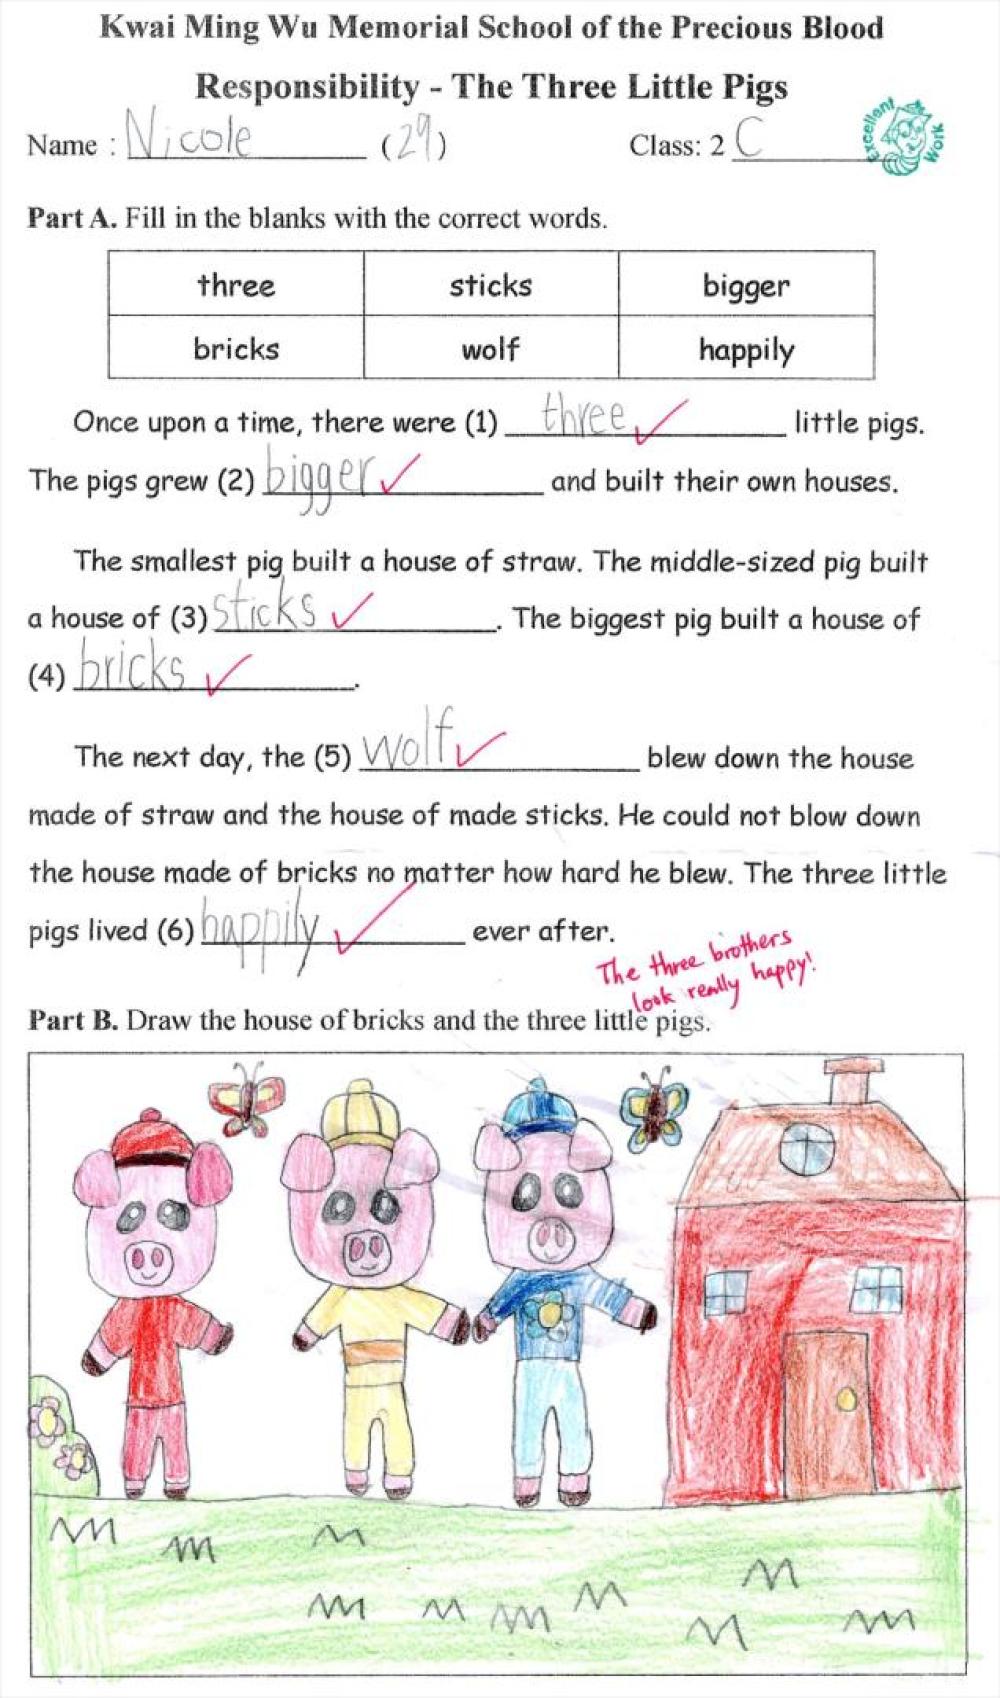 Kwai Ming Wu Memorial School of the Precious Blood
Responsibility - The Three Little Pigs
Name : Nicole (29) Class: 2 C
Excellent Work
Part A. Fill in the blanks with the correct words.
three sticks bigger
bricks wolf happily
Once upon a time, there were (1) three little pigs.
The pigs grew (2) bigger and built their own houses.
The smallest pig built a house of straw. The middle-sized pig built
a house of (3) sticks. The biggest pig built a house of
(4) bricks.
The next day, the (5) wolf blew down the house
made of straw and the house of made sticks. He could not blow down
the house made of bricks no matter how hard he blew. The three little
pigs lived (6) happily ever after.
The three brothers
look really happy!
Part B. Draw the house of bricks and the three little pigs.